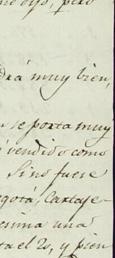 pero
drá muy bien,
se porta muy
vendido como
Sino fuere
gotá, Cartaje-
esima una
ta el 2s, y pien